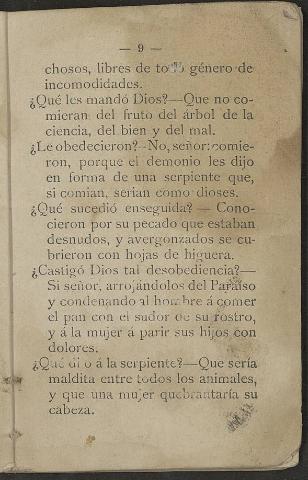 — 9 —
chosos, libres de todo género de
incomodidades.
¿Qué les mandó Dios?—Que no co-
mieran del fruto del árbol de la
ciencia, del bien y del mal.
¿Le obedecieron?—No, señor: comie-
ron, porque el demonio les dijo
en forma de una serpiente que,
si comian, serian como dioses.
¿Qué sucedió enseguida? — Cono-
cieron por su pecado que estaban
desnudos, y avergonzados se cu-
brieron con hojas de higuera.
¿Castigó Dios tal desobediencia?—
Si señor, arrojándolos del Paraíso
y condenando al hombre á comer
el pan con el sudor de su rostro,
y á la mujer á parir sus hijos con
dolores.
¿Qué dijo á la serpiente?—Que sería
maldita entre todos los animales,
y que una mujer quebrantaría su
cabeza.